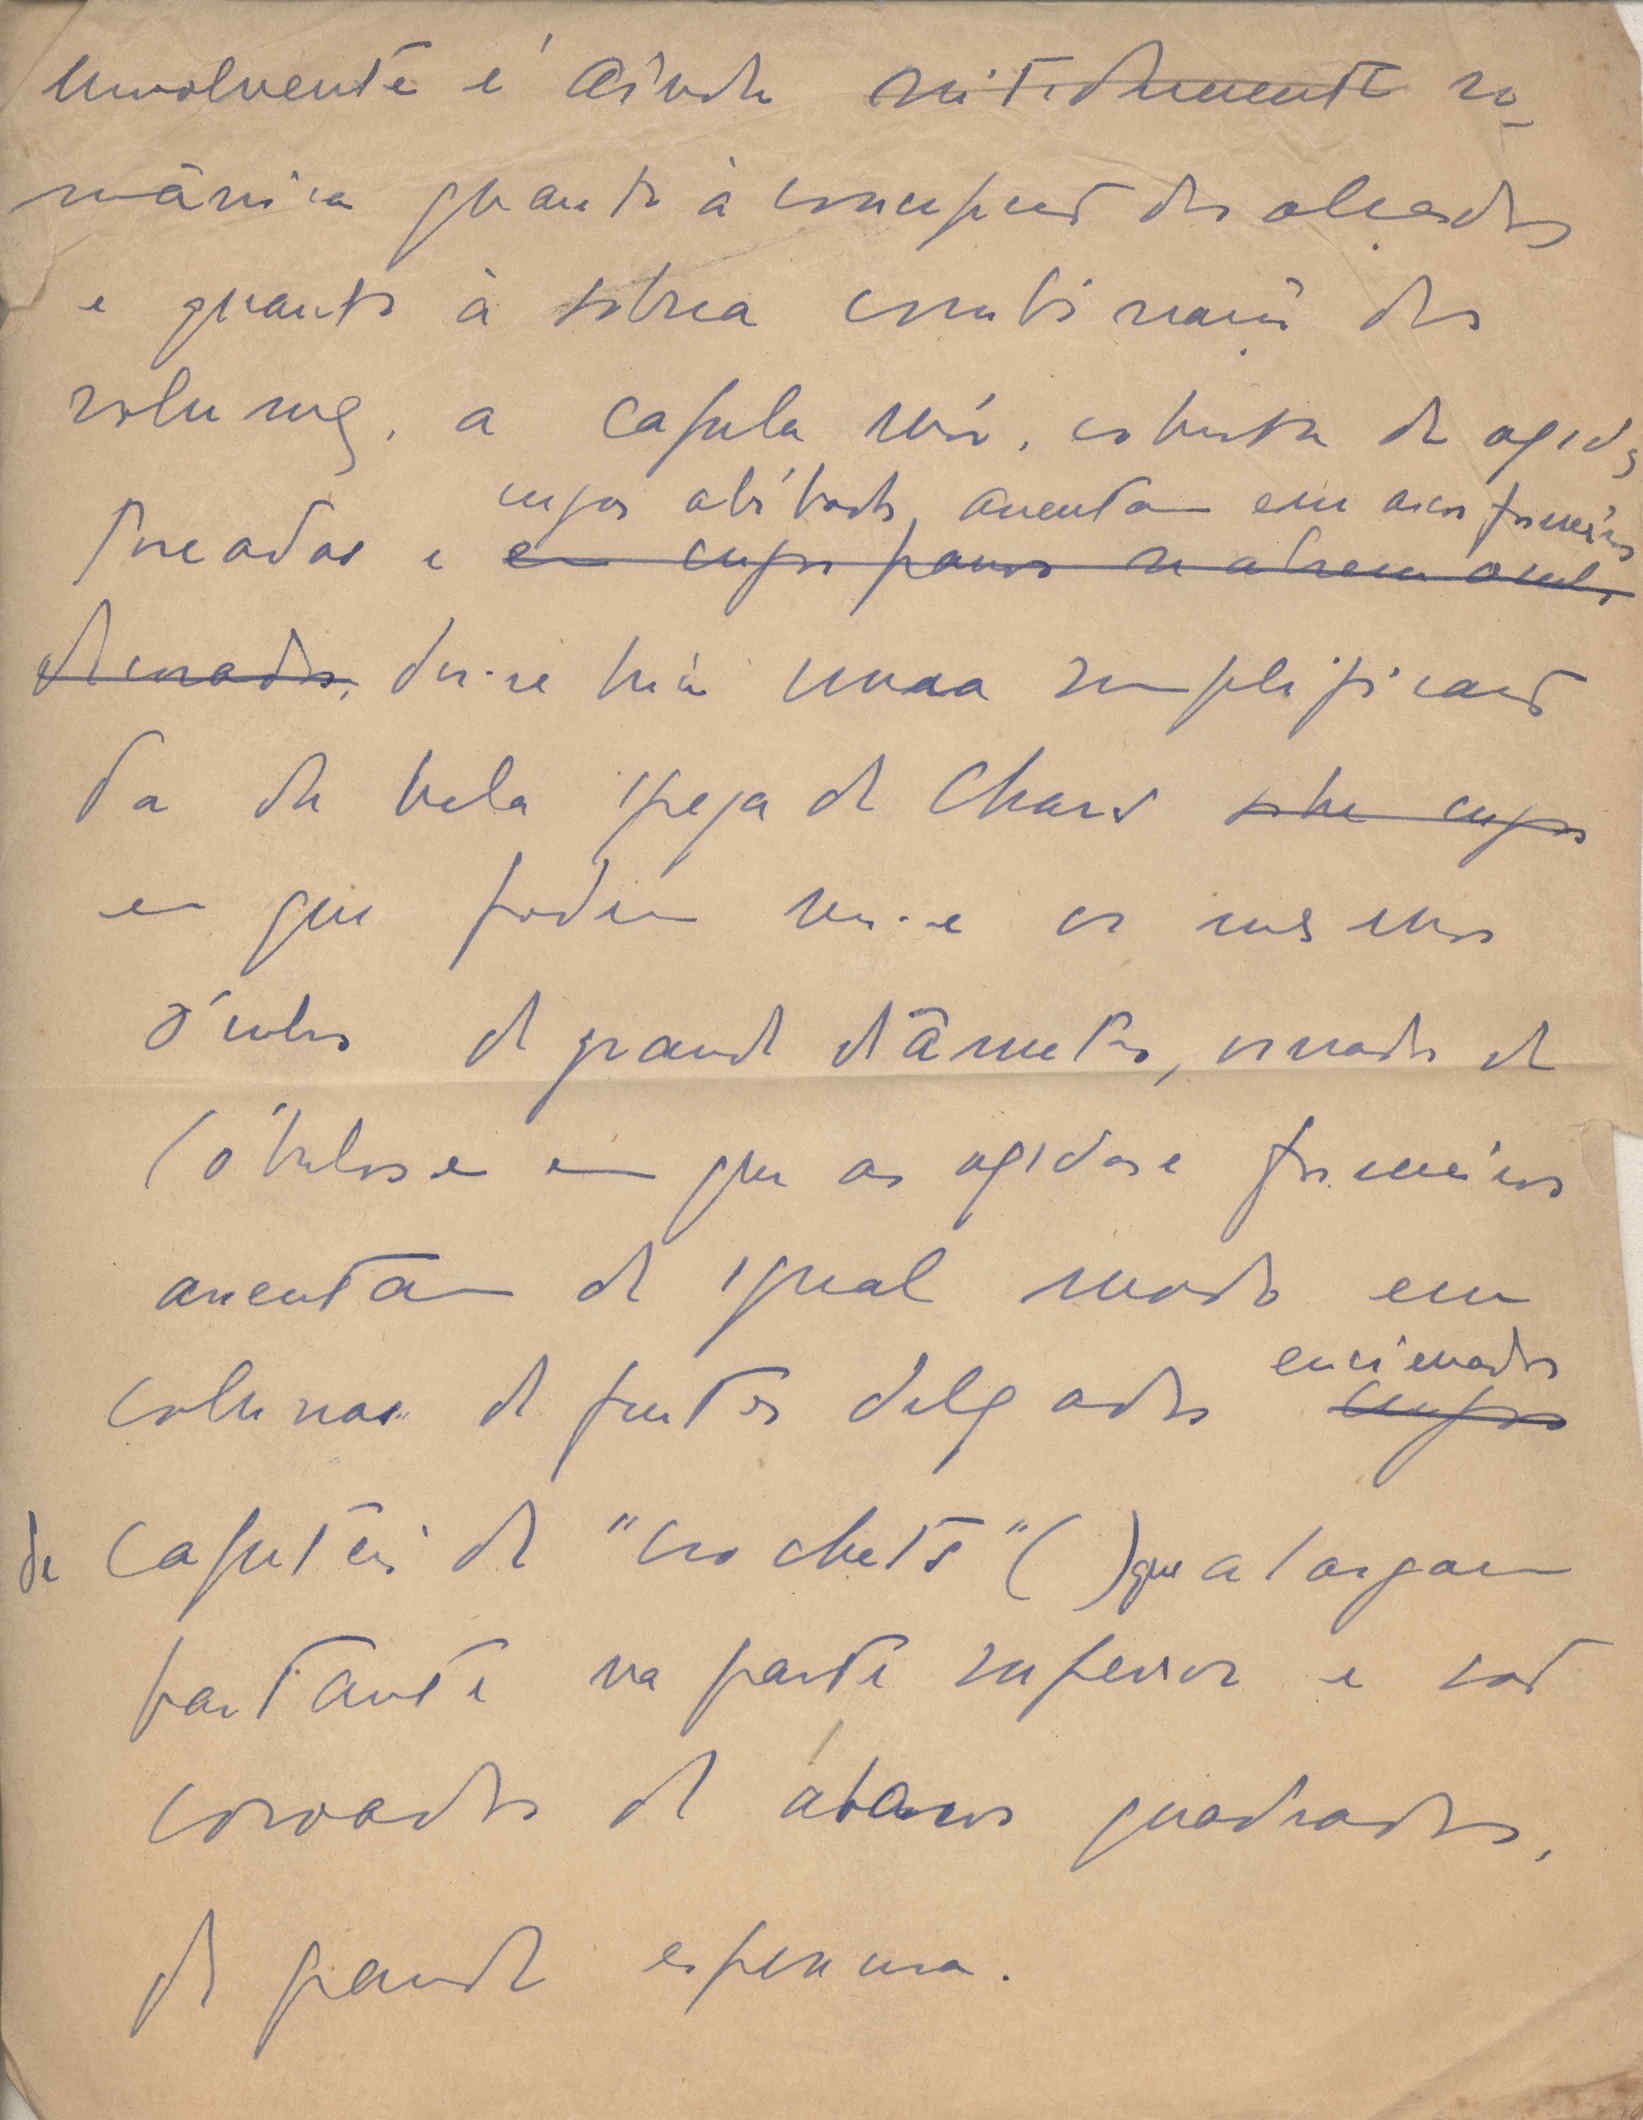 envolvente é ainda nitidamente ro-
mânica quanto à concepção dos alçados
e quanto à sobria combinação dos
volumes, a capela mór, coberta de ogivas
cujas abóbadas, assentam em arcos formeiros
toreadas e em cujos panos se abrem ocul,
dir-se hia uma simplificação
da bela igreja de Chaves sobre cujos
em que podem ver-se os mesmos
óculos de grande diâmetro, ornados de
lóbulos e em que as ogivas e formeiros
assentam de igual modo em
encimados
colunas de fustes delgados cujos
de capitéis de "crochets" ( ) que alargam
bastante na parte superior e são
coroados de ábacos quadrados,
de grande espessura.